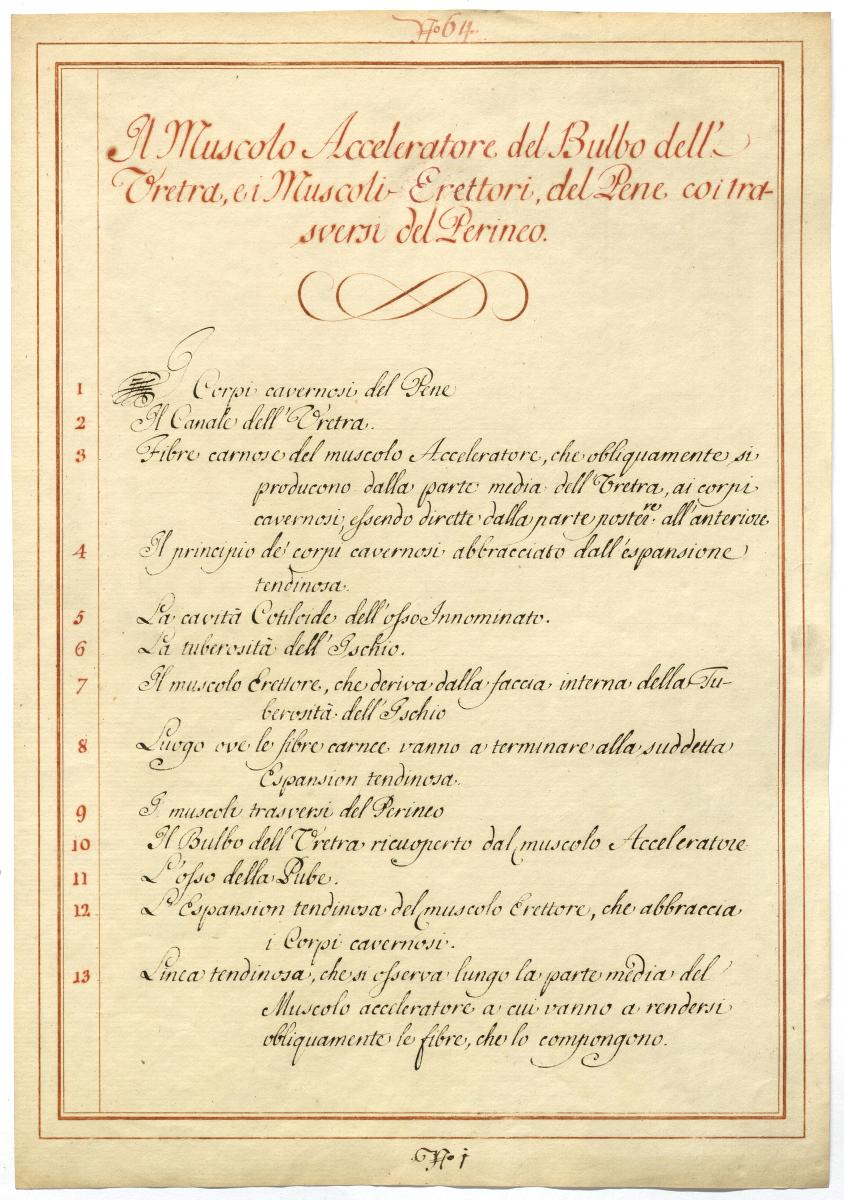 No 64.
Il Muscolo Acceleratore del Bulbo dell'
Vretra, e i Muscoli Erettori, del Pene coi tra-
sversi del Perineo.
1 I Corpi cavernosi del Pene
2 Il Canale dell' Vretra.
3 Fibre carnose del muscolo Acceleratore, che obliquamente si
producono dalla parte media dell' Vretra, ai corpi
cavernosi, essendo dirette dalla parte posterre. all'anteriore
4 Il principio de' corpi cavernosi abbracciato dall'espansione
tendinosa.
5 La cavità Cotiloide dell'osso Innominato.
6 La tuberosità dell' Ischio.
7 Il muscolo Erettore, che deriva dalla faccia interna della Tu-
berosità dell' Ischio
8 Luogo ove le fibre carnee vanno a terminare alla suddetta
Espansion tendinosa.
9 I muscoli trasversi del Perineo
10 Il Bulbo dell Vretra ricuoperto dal muscolo Acceleratore
11 L'osso della Pube.
12 L'Espansion tendinosa del muscolo Erettore, che abbraccia
i Corpi cavernosi.
13 Linea tendinosa, che si osserva lungo la parte media del
Muscolo acceleratore a cui vanno a rendersi
obliquamente le fibre, che lo compongono.
No 1